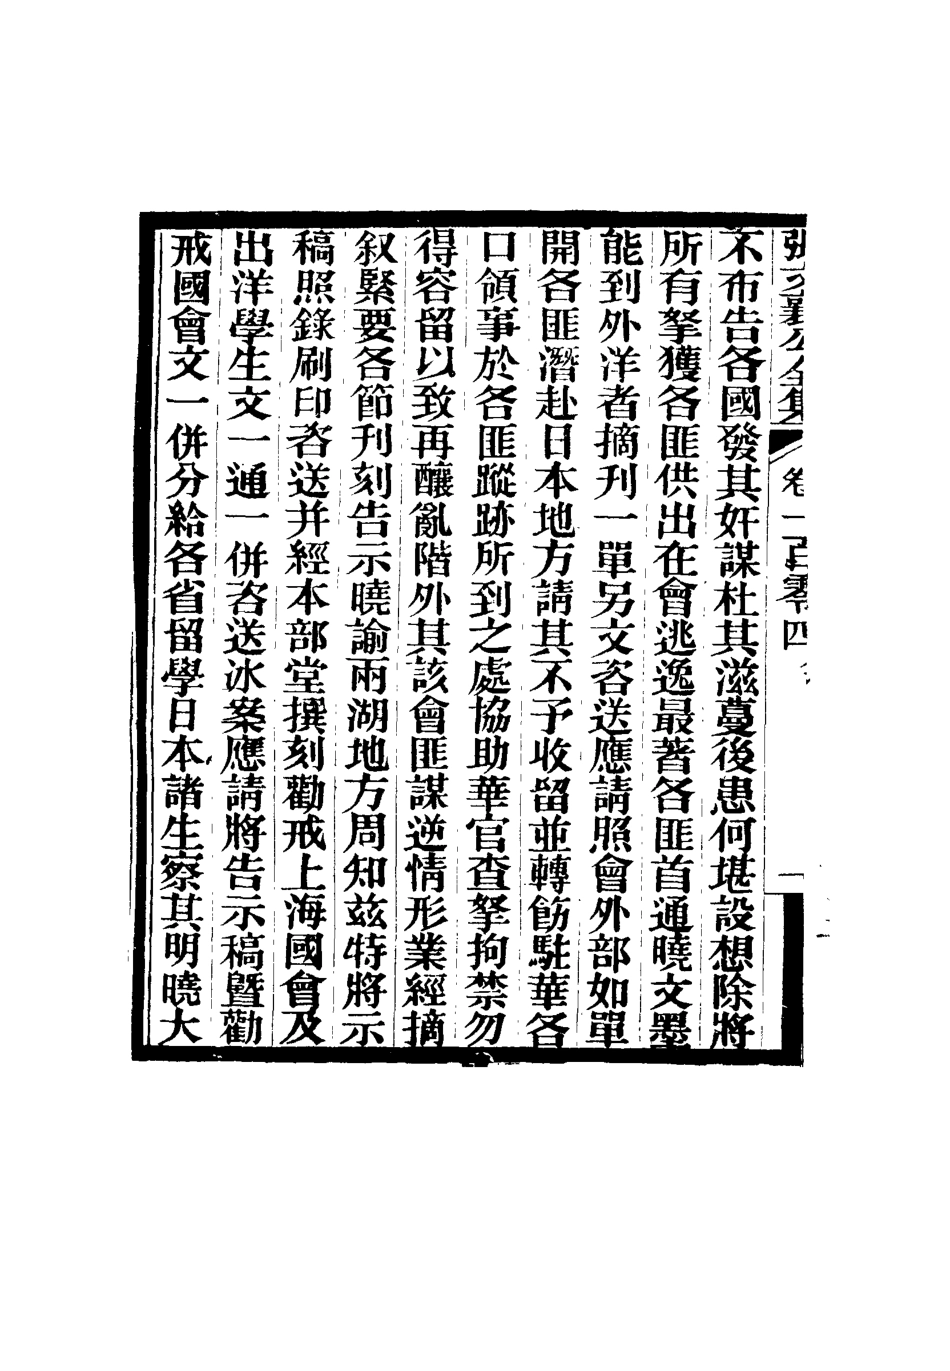 張文襄公全集 卷一百零四 一
不布告各國發其奸謀杜其滋蔓後患何堪設想除將
所有拏獲各匪供出在會逃逸最著各匪首通曉文墨
能到外洋者摘刊一單另文咨送應請照會外部如單
開各匪潛赴日本地方請其不予收留並轉飭駐華各
口領事於各匪蹤跡所到之處協助華官查拏拘禁勿
得容留以致再釀亂階外其該會匪謀逆情形業經摘
叙緊要各節刊刻告示曉諭兩湖地方周知茲特將示
稿照錄刷印咨送并經本部堂撰刻勸戒上海國會及
出洋學生文一通一併咨送冰案應請將告示稿暨勸
戒國會文一併分給各省留學日本諸生察其明曉大